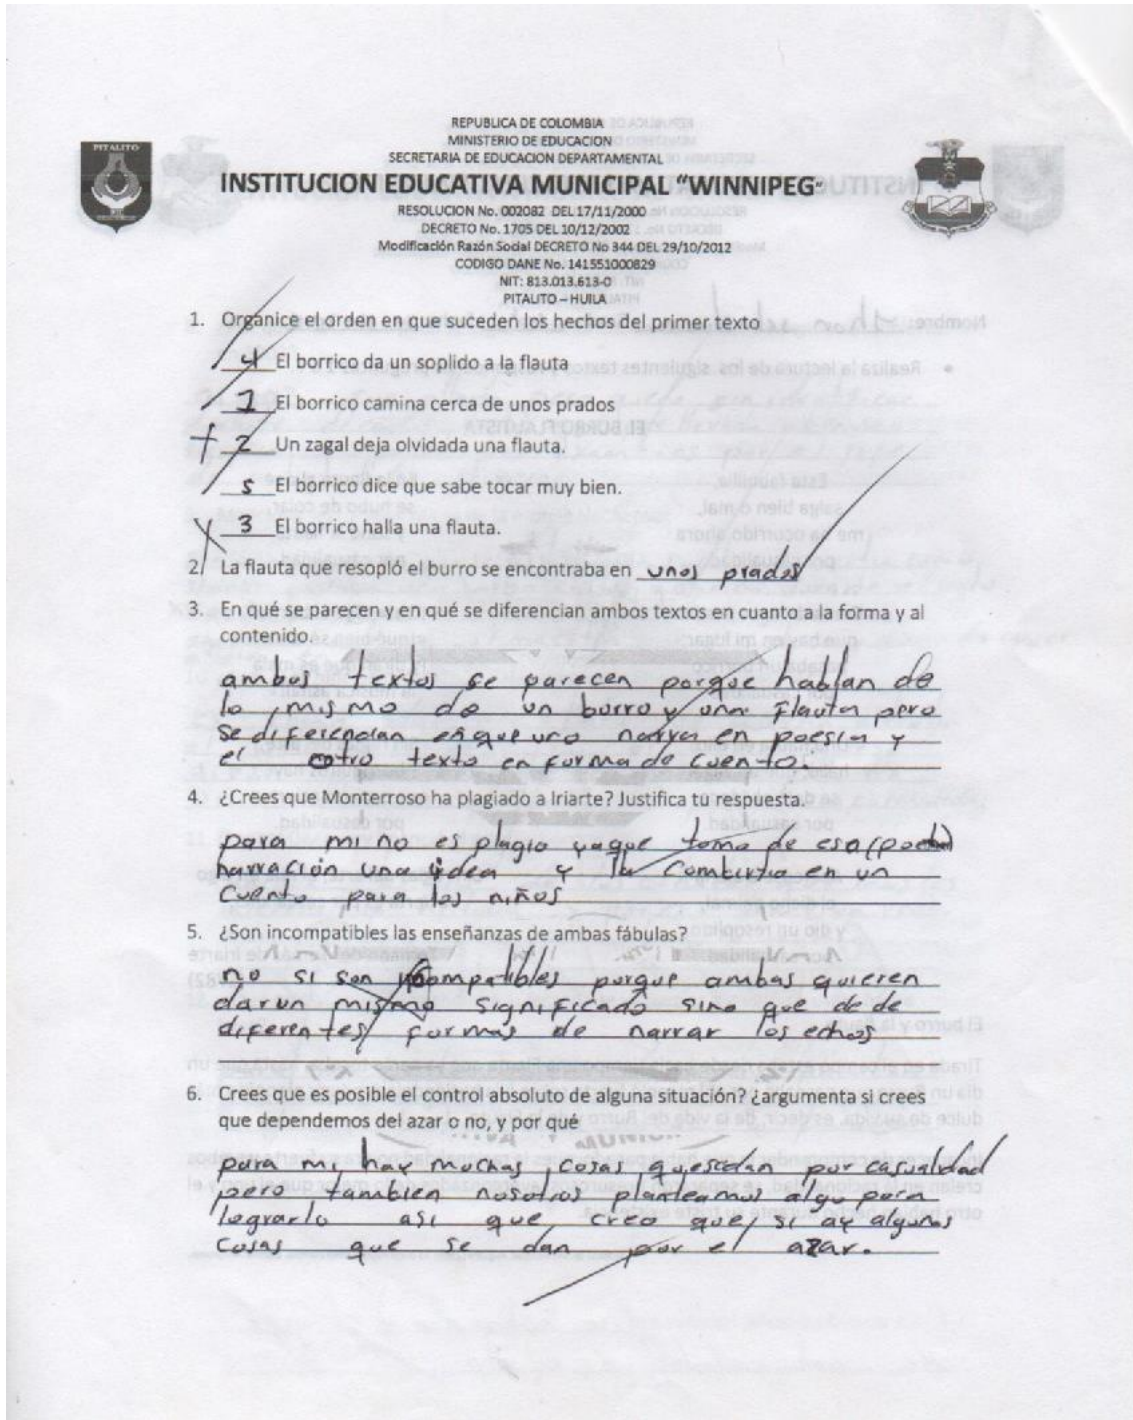 PITALITO
REPUBLICA DE COLOMBIA
MINISTERIO DE EDUCACION
SECRETARIA DE EDUCACION DEPARTAMENTAL
INSTITUCION EDUCATIVA MUNICIPAL “WINNIPEG”
RESOLUCION No. 002082 DEL 17/11/2000
DECRETO No. 1705 DEL 10/12/2002
Modificación Razón Social DECRETO No 344 DEL 29/10/2012
CODIGO DANE No. 141551000829
NIT: 813.013.613-0
PITALITO – HUILA
1. Organice el orden en que suceden los hechos del primer texto
4 El borrico da un soplido a la flauta
1 El borrico camina cerca de unos prados
2 Un zagal deja olvidada una flauta.
5 El borrico dice que sabe tocar muy bien.
3 El borrico halla una flauta.
2. La flauta que resopló el burro se encontraba en unos prados
3. En qué se parecen y en qué se diferencian ambos textos en cuanto a la forma y al
contenido.
ambos textos se parecen porque hablan de
lo mismo de un burro y una flauta pero
se diferencian en que uno narra en poesia y
el otro texto en forma de cuento.
4. ¿Crees que Monterroso ha plagiado a Iriarte? Justifica tu respuesta.
para mi no es plagio ya que tomo de esa
narración una idea y la combirtio en un
cuento para los niños
5. ¿Son incompatibles las enseñanzas de ambas fábulas?
no si son compatibles porque ambas quieren
dar un mismo significado sino que de de
diferentes formas de narrar los echos
6. Crees que es posible el control absoluto de alguna situación? ¿argumenta si crees
que dependemos del azar o no, y por qué
para mi hay muchas cosas que se dan por casualdad
pero tambien nosotros planteamos algo para
lograrlo asi que creo que si ay algunas
cosas que se dan por el azar.